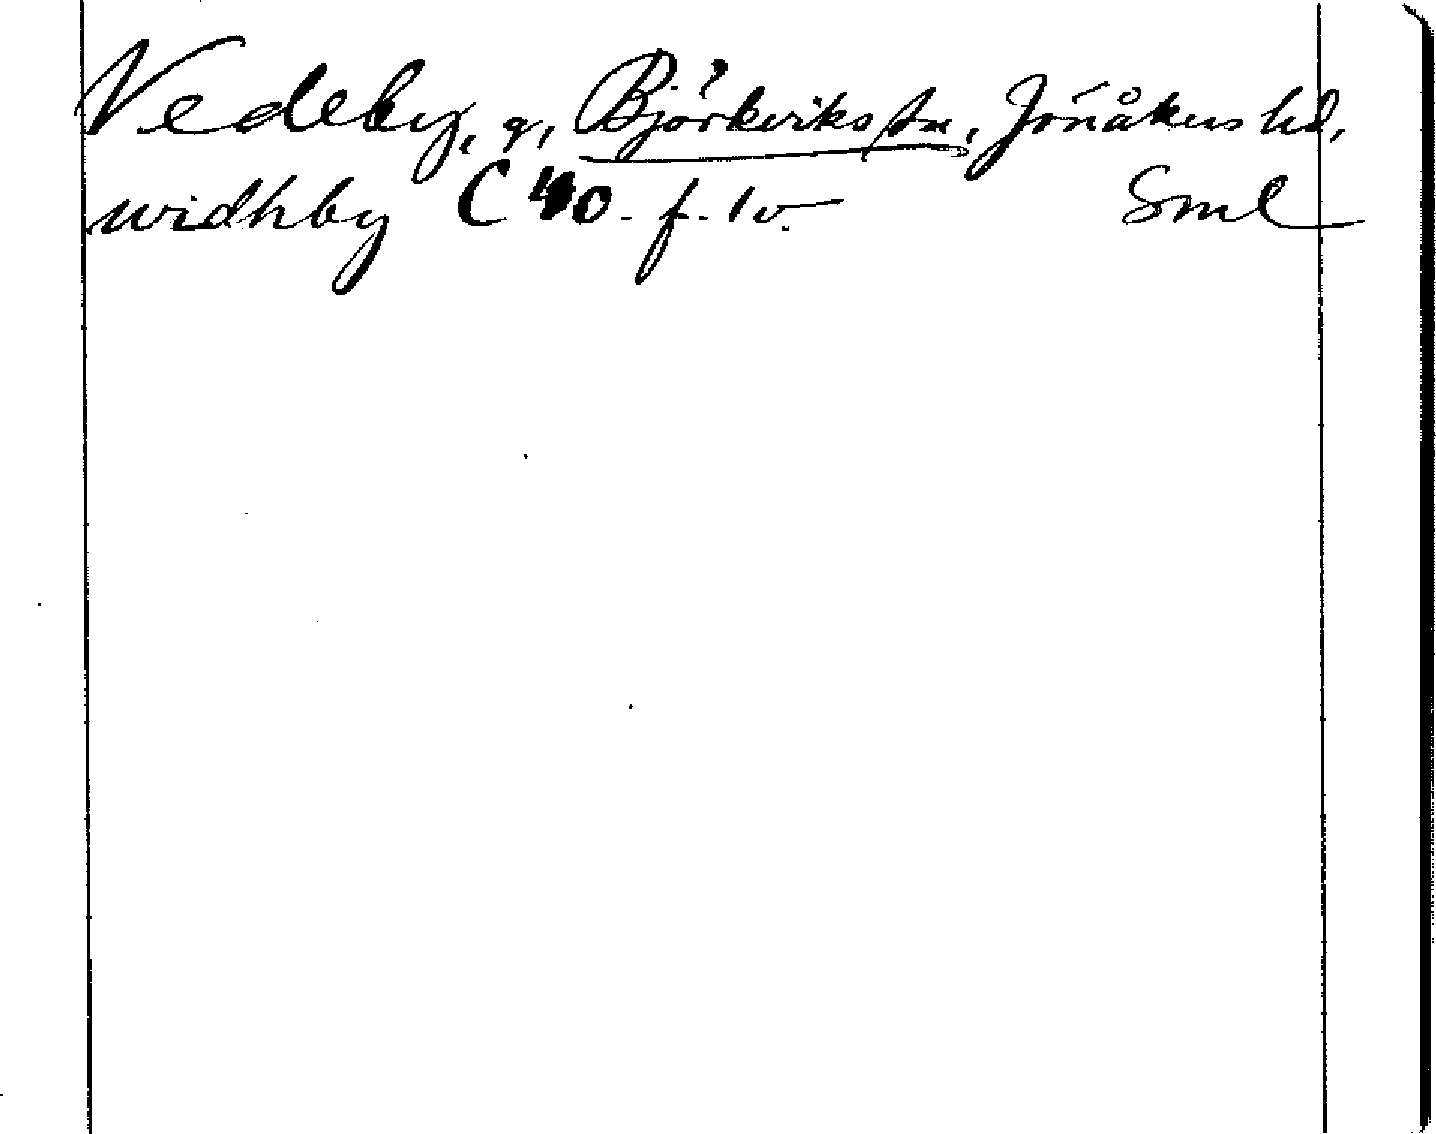 Vedeby, g, Björkviks sn, Jönåkers hd,
widhby C 40 f. 1v. Sml